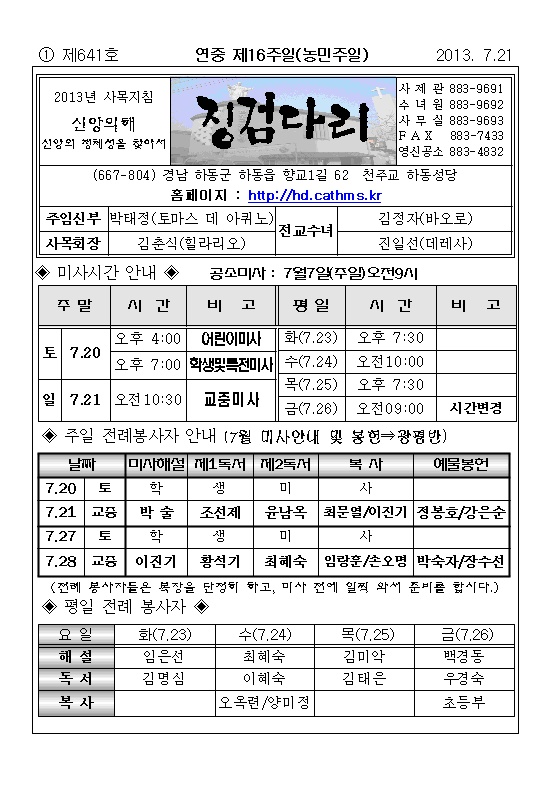 ① 제641호 연중 제16주일(농민주일) 2013. 7.21
2013년 사목지침
신앙의해
신앙의 정체성을 찾아서
징검다리
사 제 관 883-9691
수 녀 원 883-9692
사 무 실 883-9693
F A X 883-7433
영신공소 883-4832
(667-804) 경남 하동군 하동읍 향교1길 62 천주교 하동성당
홈페이지 : http://hd.cathms.kr
주임신부 박태정(토마스 데 아퀴노) 전교수녀 김정자(바오로)
사목회장 김춘식(힐라리오) 진일선(데레사)
◈ 미사시간 안내 ◈ 공소미사 : 7월7일(주일)오전9시
주 말 시 간 비 고 평 일 시 간 비 고
토 7.20 오후 4:00 어린이미사 화(7.23) 오후 7:30
오후 7:00 학생및특전미사 수(7.24) 오전10:00
일 7.21 오전10:30 교중미사 목(7.25) 오후 7:30
금(7.26) 오전09:00 시간변경
◈ 주일 전례봉사자 안내 (7월 미사안내 및 봉헌⇒광평반)
날짜 미사해설 제1독서 제2독서 복 사 예물봉헌
7.20 토 학 생 미 사
7.21 교중 박 술 조선제 윤남옥 최문열/이진기 정봉호/강은순
7.27 토 학 생 미 사
7.28 교중 이진기 황석기 최혜숙 임랑훈/손오명 박숙자/장수선
(전례 봉사자들은 복장을 단정히 하고, 미사 전에 일찍 와서 준비를 합시다.)
◈ 평일 전례 봉사자 ◈
요 일 화(7.23) 수(7.24) 목(7.25) 금(7.26)
해 설 임은선 최혜숙 김미악 백경동
독 서 김명심 이혜숙 김태은 우경숙
복 사 오옥련/양미정 초등부